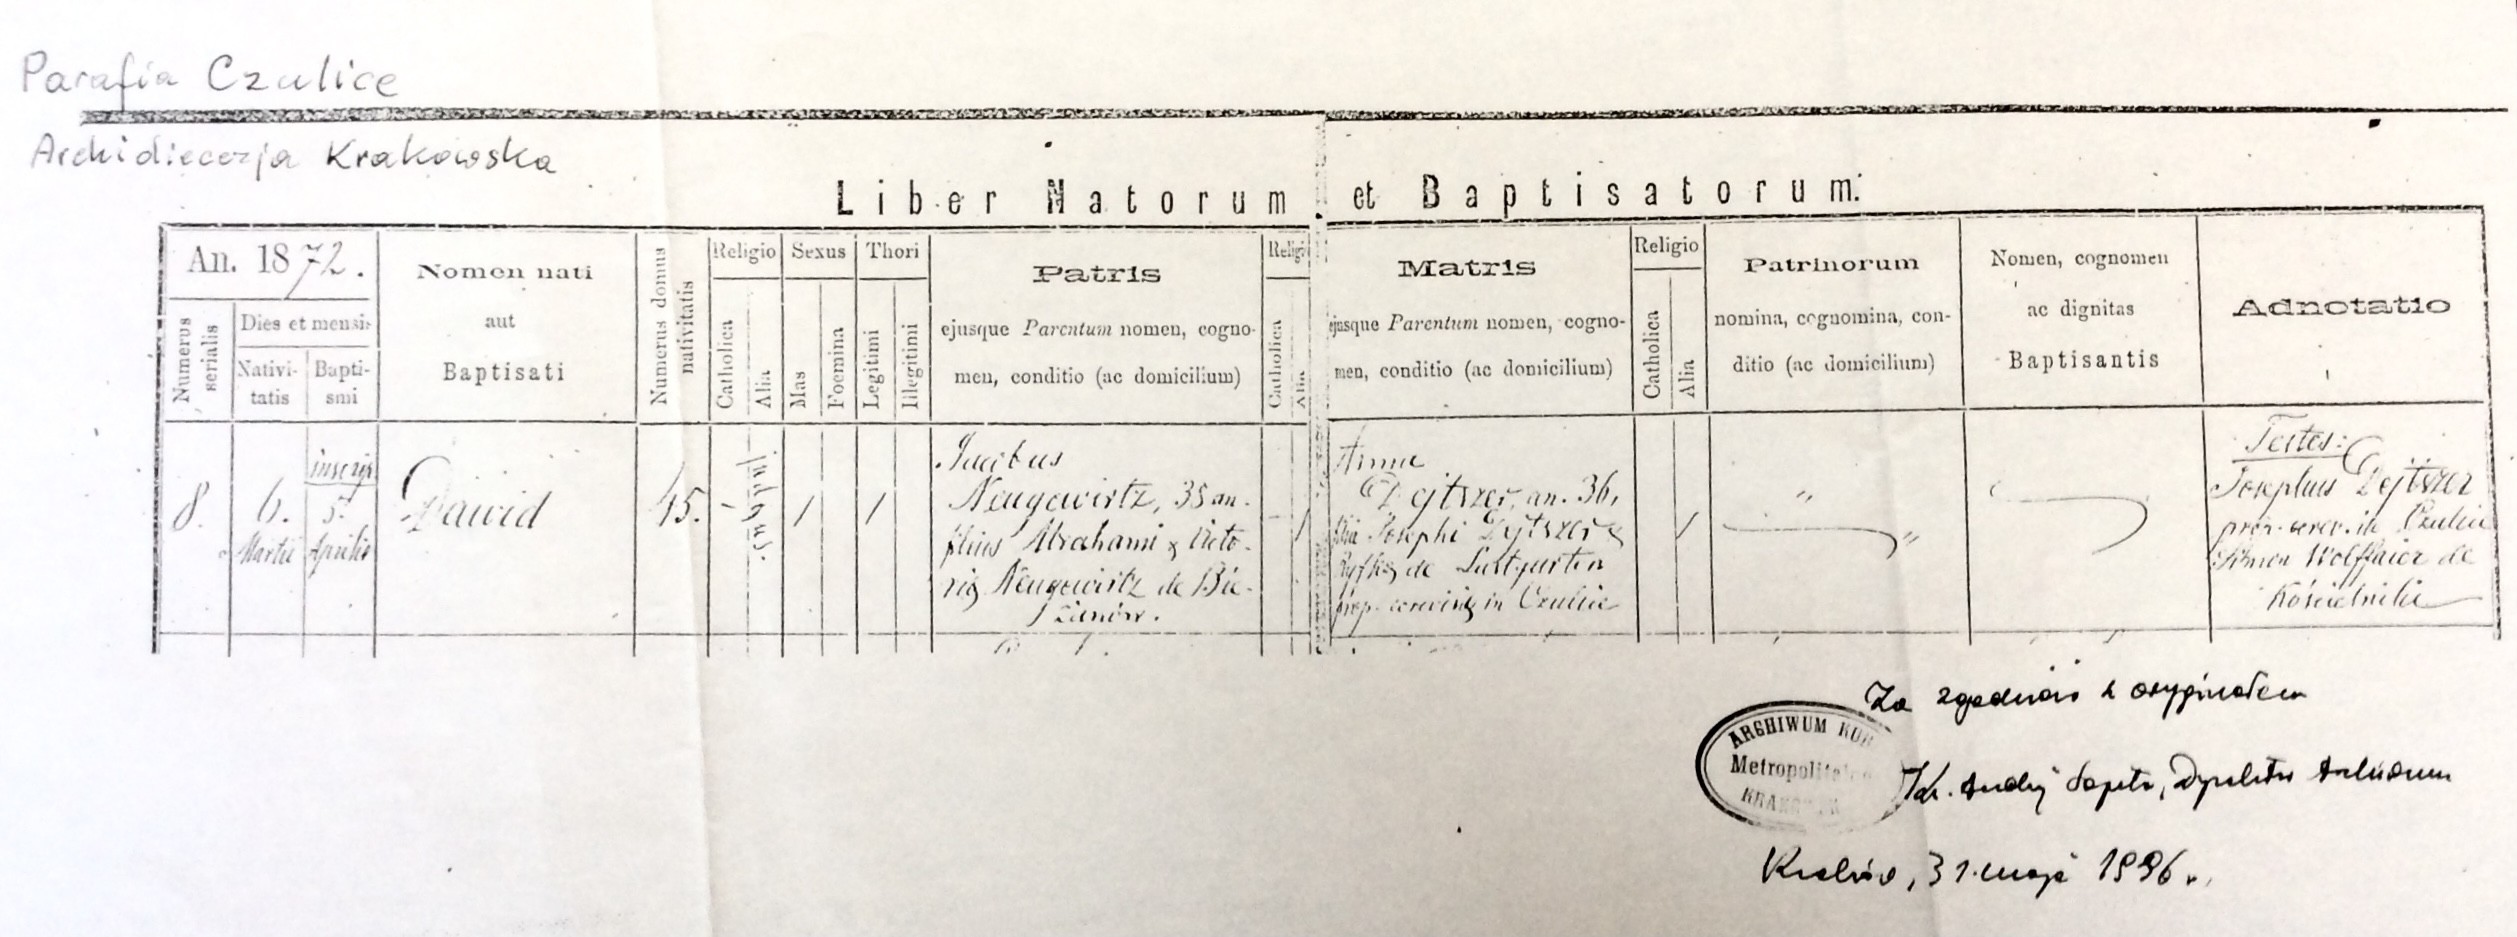 Parafia Czulice
Archidiecezja Krakowska
Liber Natorum et Baptisatorum.
An. 1872.
Numerus serialis
Dies et mensis
Nativi-
tatis
Bapti-
smi
Nomen nati
aut
Baptisati
Numerus domus
nativitatis
Religio
Catholica
Alia
Sexus
Mas
Foemina
Thori
Legitimi
Illegitimi
Patris
ejusque Parentum nomen, cogno-
men, conditio (ac domicilium)
Religi
Catholica
Alia
Matris
ejusque Parentum nomen, cogno-
men, conditio (ac domicilium)
Religio
Catholica
Alia
Patrinorum
nomina, cognomina, con-
ditio (ac domicilium)
Nomen, cognomen
ac dignitas
Baptisantis
Adnotatio
8.
6.
Martii
5.
Aprilis
Dawid
45.
Jacobus
Neugewirtz, 35 an.
filius Abrahami & Victo-
rię Neugewirtz de Bie-
żanów.
Anna
Dejtszer, an. 36,
filia Josephi Dejtszer &
Ryfkę de Lustgarten
prop. cerevisię in Czulice
Testes:
Josephus Dejtszer
de Czulice
Simon de
Kościelniki
ARCHIWUM KUR
Metropolital
KRAK
Za zgodność z oryginałem
Ks. Andrzej Sapeta, Dyrektor Archiwum
Kraków, 31. maja 1996 r.